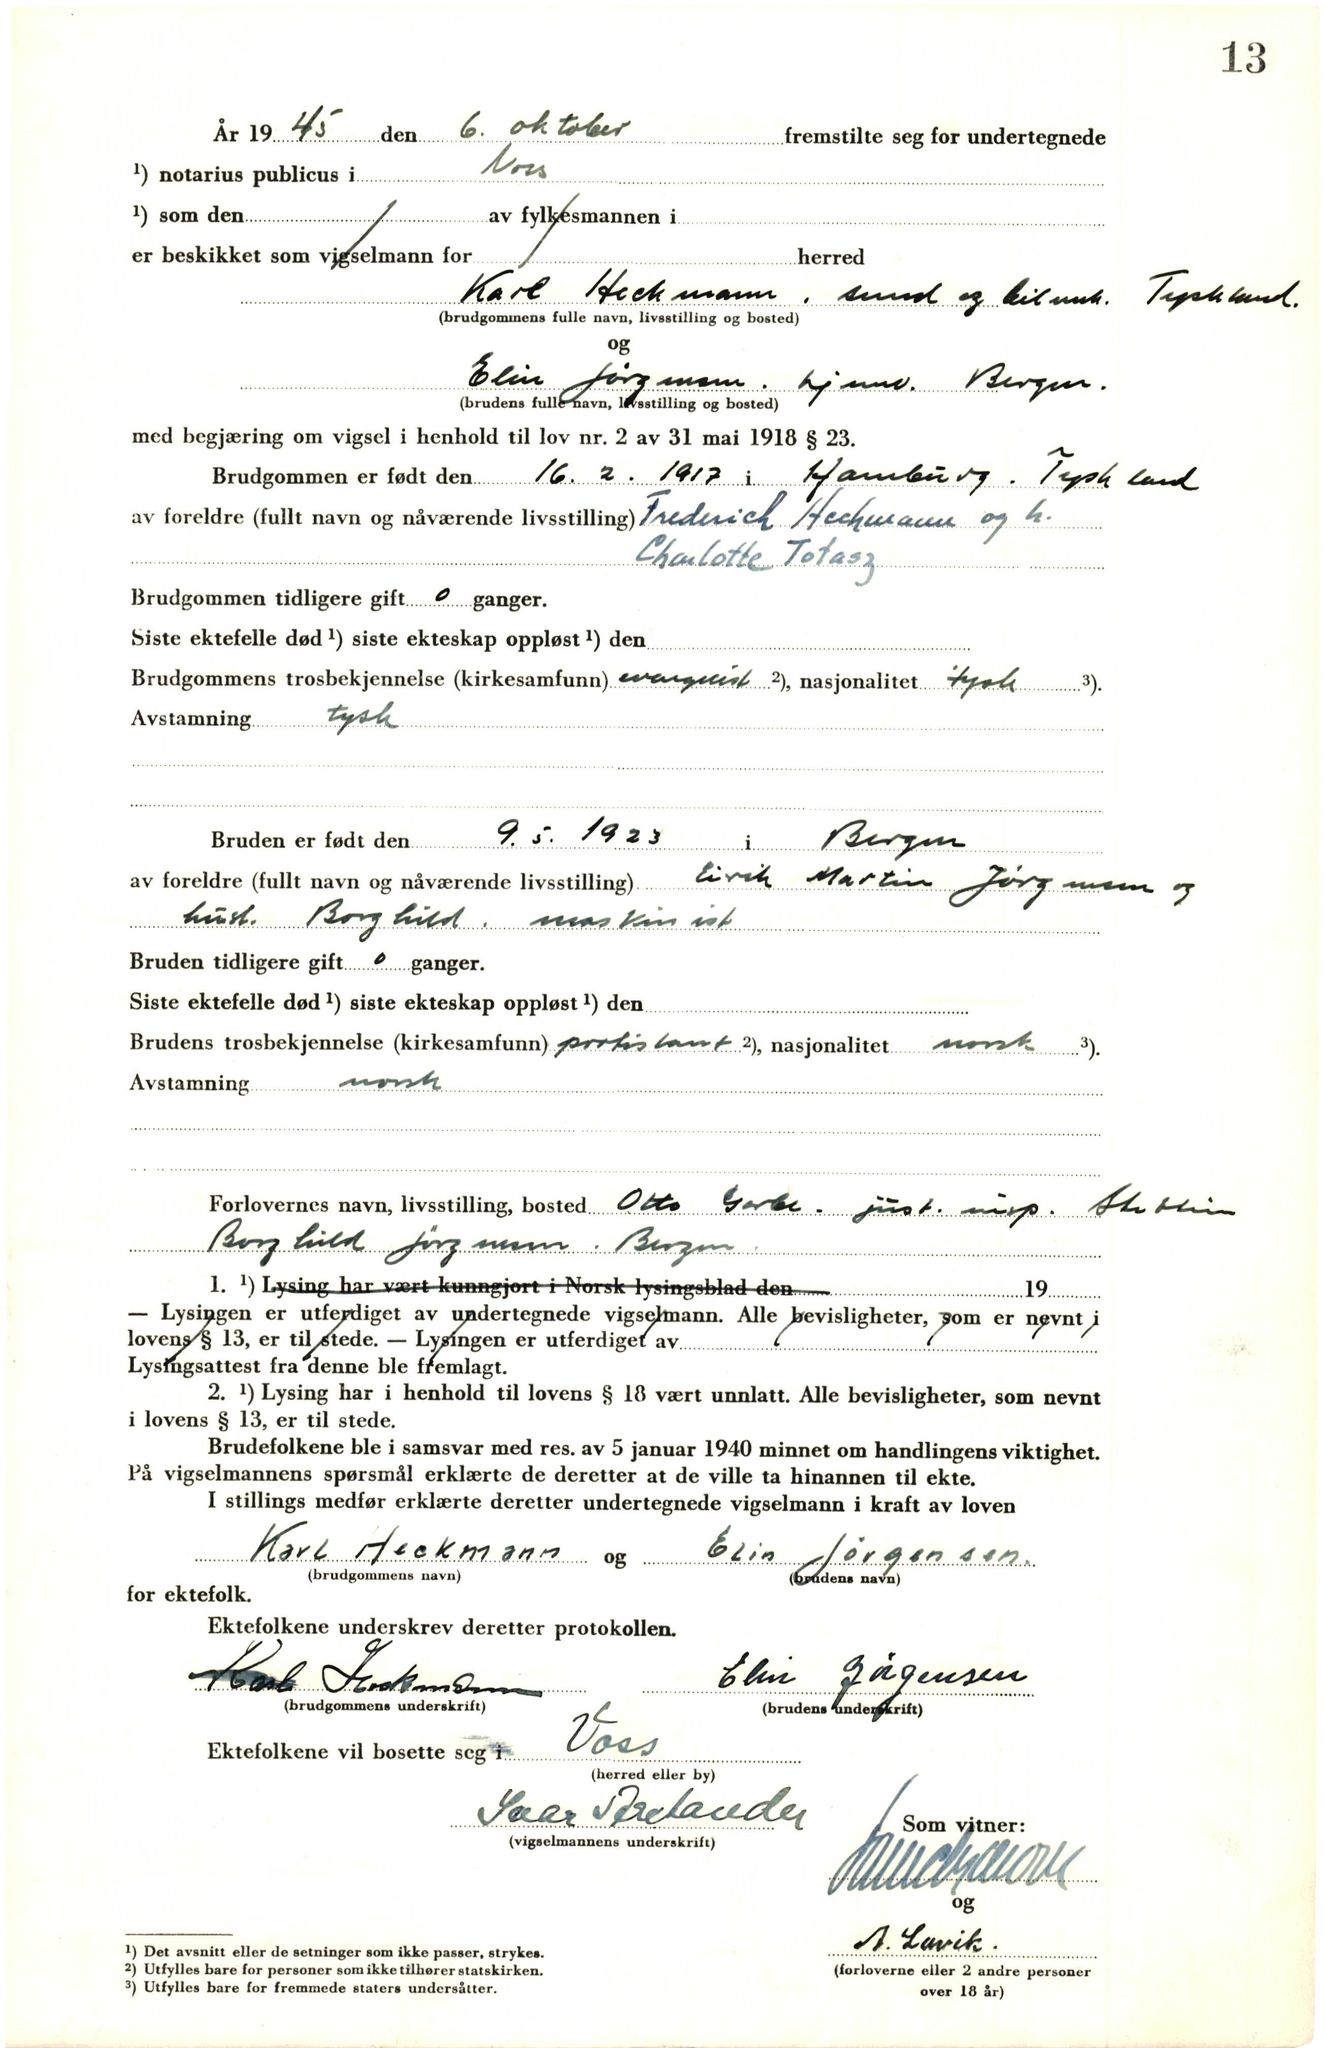 13
År 19 45 den 6. oktober fremstilte seg for undertegnede
¹) notarius publicus i Voss
¹) som den av fylkesmannen i
er beskikket som vigselmann for herred
Karl Heckmann. smed og Tyskland.
(brudgommens fulle navn, livsstilling og bosted)
og
Elin Jørgensen. hj Bergen.
(brudens fulle navn, livsstilling og bosted)
med begjæring om vigsel i henhold til lov nr. 2 av 31 mai 1918 § 23.
Brudgommen er født den 16. 2. 1917 i Hamburg. Tyskland
av foreldre (fullt navn og nåværende livsstilling) Frederich Heckmann og h.
Charlotte Totasz
Brudgommen tidligere gift 0 ganger.
Siste ektefelle død ¹) siste ekteskap oppløst ¹) den
Brudgommens trosbekjennelse (kirkesamfunn) evangelist ²), nasjonalitet tysk ³).
Avstamning tysk
Bruden er født den 9. 5. 1923 i Bergen
av foreldre (fullt navn og nåværende livsstilling) Eirik Martin Jørgensen og
hust. Borghild. maskinist
Bruden tidligere gift 0 ganger.
Siste ektefelle død ¹) siste ekteskap oppløst ¹) den
Brudens trosbekjennelse (kirkesamfunn) protistant ²), nasjonalitet norsk ³).
Avstamning norsk
Forlovernes navn, livsstilling, bosted Otto just. insp. Stettin
Borghild Jørgensen. Bergen.
1. ¹) Lysing har vært kunngjort i Norsk lysingsblad den 19
— Lysingen er utferdiget av undertegnede vigselmann. Alle bevisligheter, som er nevnt i
lovens § 13, er til stede. — Lysingen er utferdiget av
Lysingsattest fra denne ble fremlagt.
2. ¹) Lysing har i henhold til lovens § 18 vært unnlatt. Alle bevisligheter, som nevnt
i lovens § 13, er til stede.
Brudefolkene ble i samsvar med res. av 5 januar 1940 minnet om handlingens viktighet.
På vigselmannens spørsmål erklærte de deretter at de ville ta hinannen til ekte.
I stillings medfør erklærte deretter undertegnede vigselmann i kraft av loven
Karl Heckmann og Elin Jørgensen.
(brudgommens navn) (brudens navn)
for ektefolk.
Ektefolkene underskrev deretter protokollen.
Karl Heckmann Elin Jörgensen
(brudgommens underskrift) (brudens underskrift)
Ektefolkene vil bosette seg i Voss
(herred eller by)
(vigselmannens underskrift)
Som vitner:
og
A. Lavik.
(forloverne eller 2 andre personer
over 18 år)
¹) Det avsnitt eller de setninger som ikke passer, strykes.
²) Utfylles bare for personer som ikke tilhører statskirken.
³) Utfylles bare for fremmede staters undersåtter.